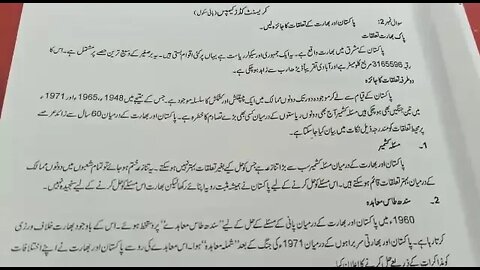 کریسنٹ کڈز کیمپس (ہائی سکول)
سوال نمبر 2: پاکستان اور بھارت کے تعلقات کا جائزہ لیں۔
پاک بھارت تعلقات
پاکستان کے مشرق میں بھارت واقع ہے۔ یہ ایک جمہوری اور سیکولر ریاست ہے یہاں پر کئی اقوام بستی ہیں۔ یہ برصغیر کے وسیع ترین حصے پر مشتمل ہے۔ اس کا
رقبہ 3165596 مربع کلومیٹر ہے اور آبادی تقریباً ڈیڑھ ارب سے زائد ہو چکی ہے۔
دو طرفہ تعلقات کا جائزہ
پاکستان کے قیام سے لے کر موجودہ دور تک دونوں ممالک میں ایک چپقلش اور کشمکش کا سلسلہ موجود ہے۔ جس کے نتیجے میں 1948ء، 1965ء اور 1971ء
میں تین جنگیں بھی ہو چکی ہیں مسئلہ کشمیر آج بھی دونوں ریاستوں کے درمیان کسی بھی بڑے تصادم کا خطرہ ہے۔ پاکستان اور بھارت کے درمیان 60 سال سے زائد عرصے
پر محیط تعلقات کو مندرجہ ذیل نکات میں بیان کیا جا سکتا ہے۔
1۔ مسئلہ کشمیر
پاکستان اور بھارت کے درمیان مسئلہ کشمیر سب سے بڑا تنازعہ ہے جس کو حل کیے بغیر تعلقات بہتر نہیں ہو سکتے ہیں۔ یہ تنازعہ ختم ہو جائے تو تمام شعبوں میں دونوں ممالک کے
درمیان بہتر تعلقات قائم ہو سکتے ہیں۔ اس مسئلے کو حل کرنے کے لیے پاکستان نے ہمیشہ مثبت رویہ اپنائے رکھا لیکن بھارت اس مسئلے کو حل کرنے کے لیے سنجیدہ نہیں۔
2۔ سندھ طاس معاہدہ
1960ء میں پاکستان اور بھارت کے درمیان پانی کے مسئلے کے حل کے لیے "سندھ طاس معاہدے" پر دستخط ہوئے۔ اس کے باوجود بھارت خلاف ورزی
کرتا رہا ہے۔ پاکستان اور بھارتی سربراہوں کے درمیان 1971ء کی جنگ کے بعد "شملہ معاہدہ" ہوا۔ اس معاہدے کی رو سے پاکستان اور بھارت نے اپنے اختلافات
کو مذاکرات کے ذریعے حل کرنے کا اعلان کیا۔